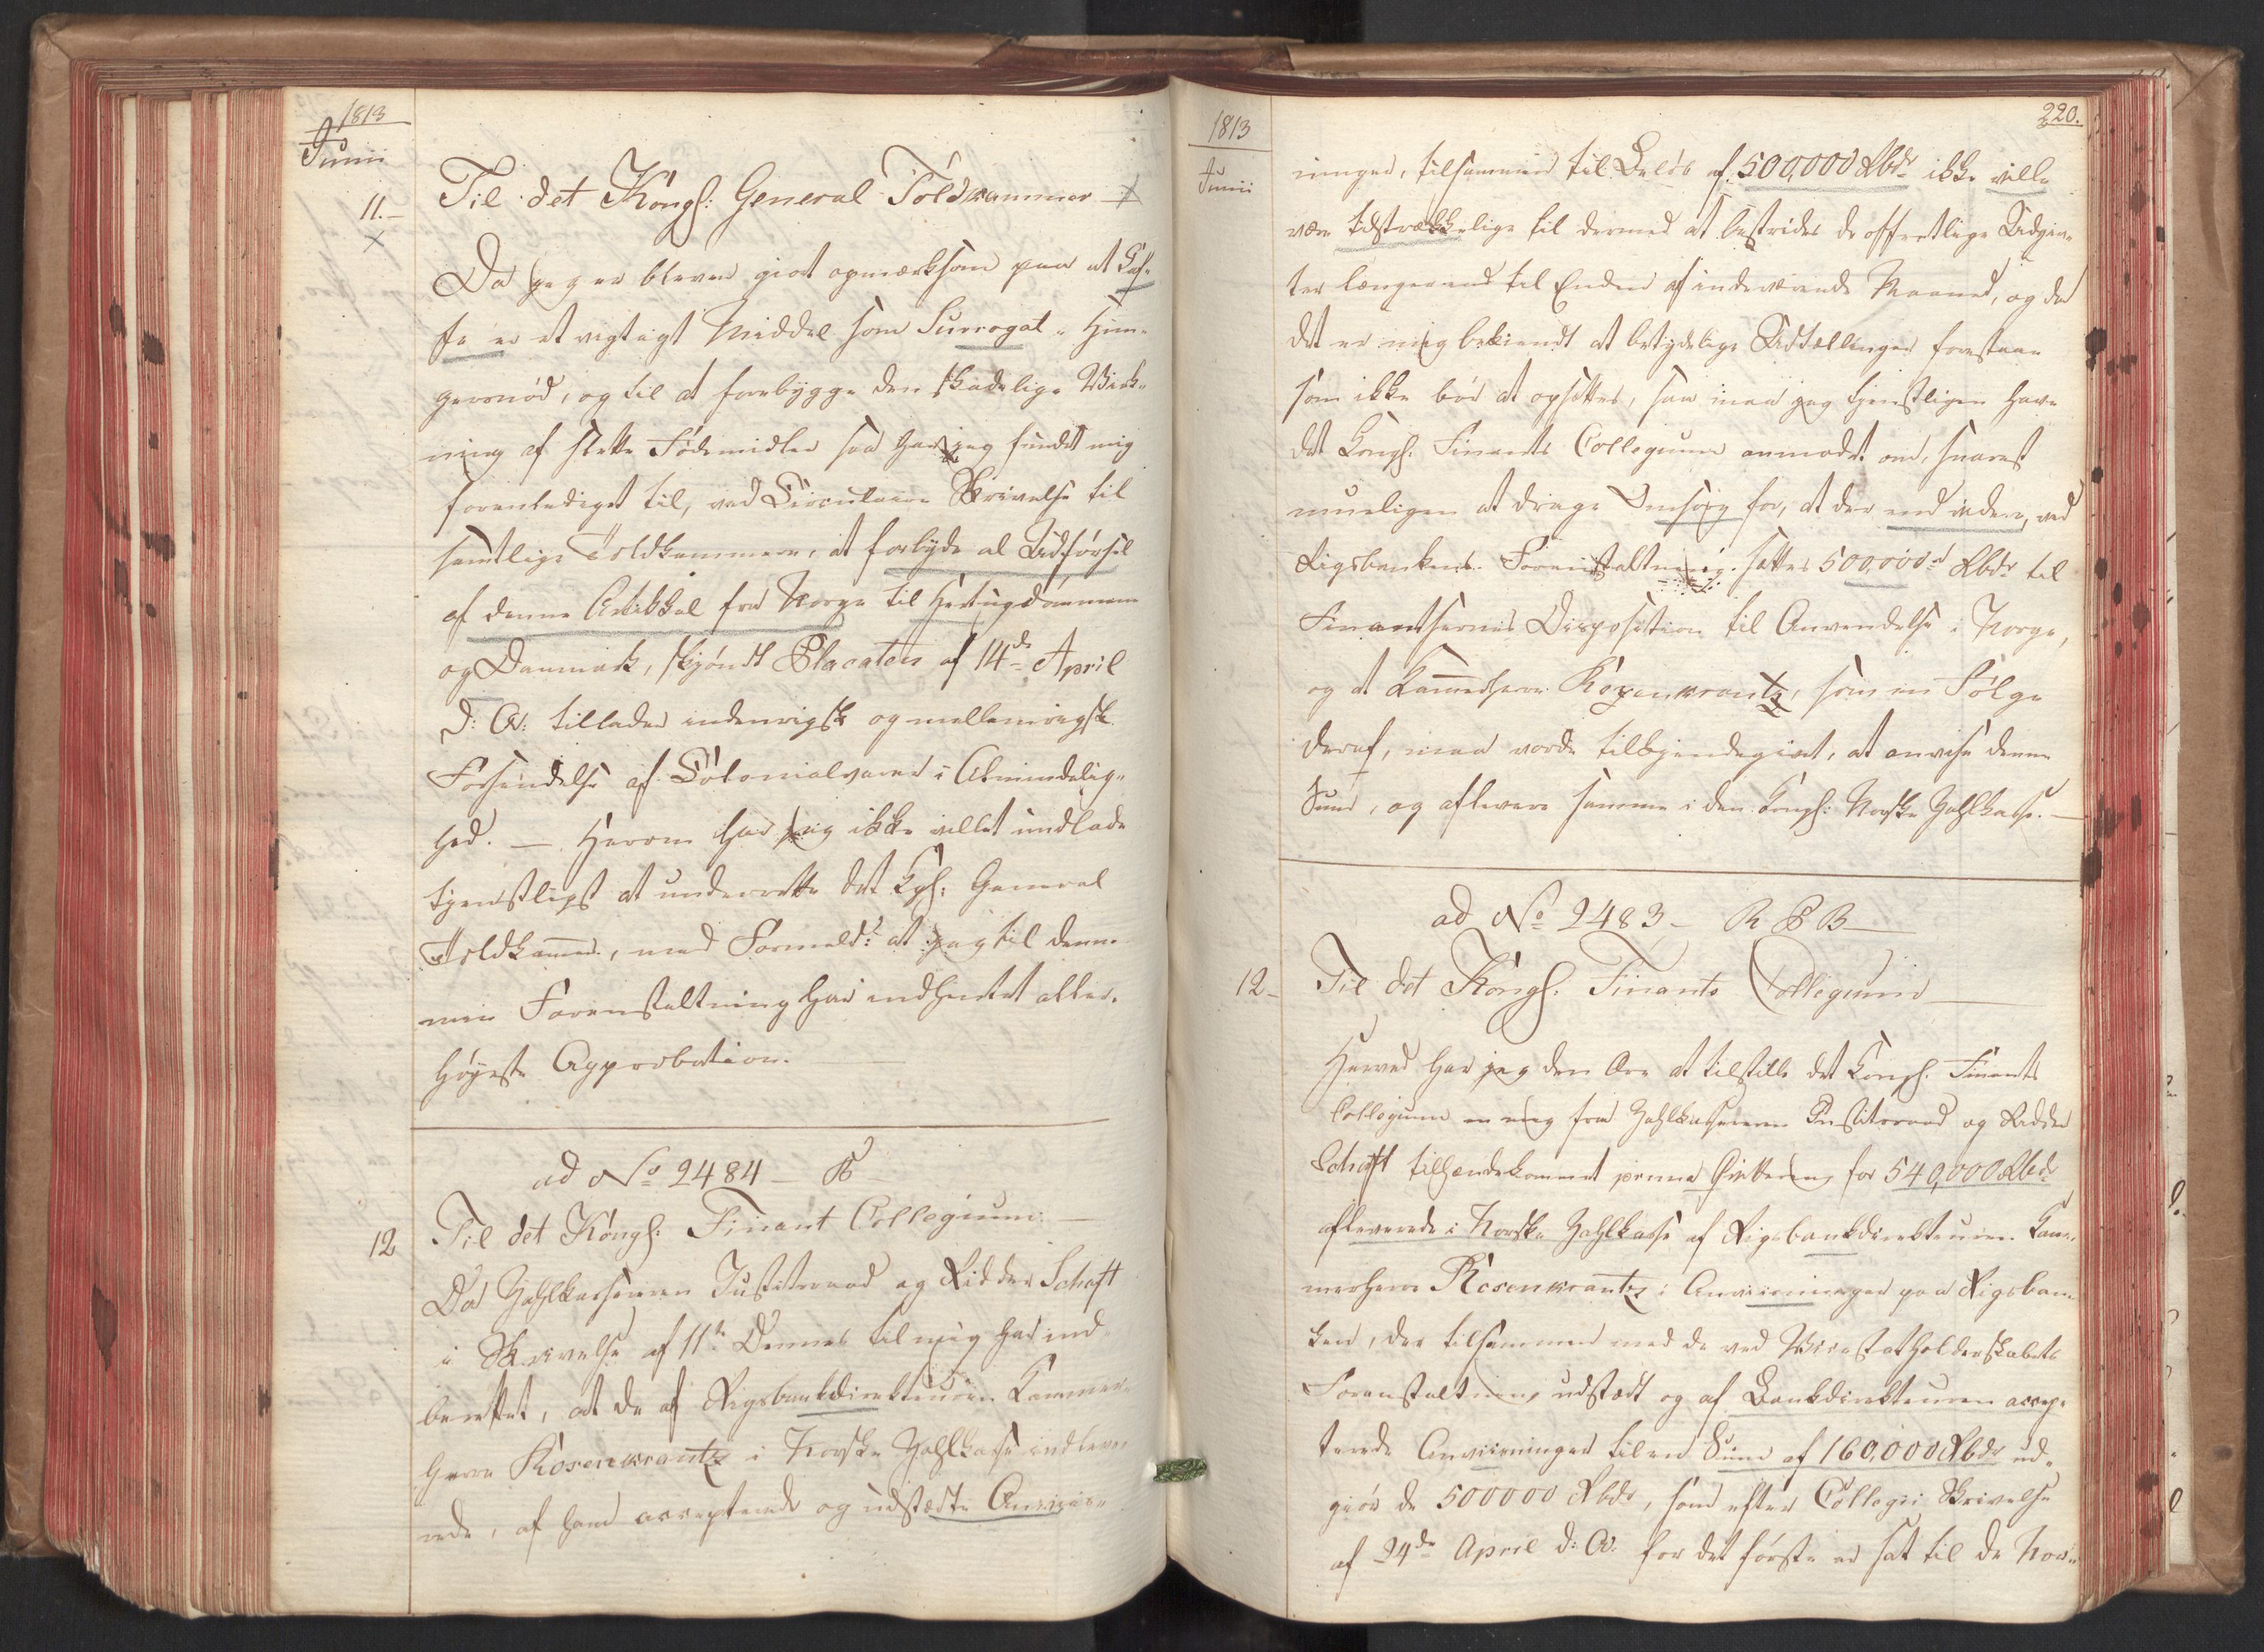 1813
Junii
11.-
Til det Kongl: General Toldkammer
Da jeg er bleven giort opmærksom paa at Caf-
fe er et vigtigt Middel som Surrogat i Hun-
gersnød, og til at forebygge den skadelige Virk-
ning af slette Fødemidler saa har jeg fundet mig
foranlediget til, ved Circulaire Skrivelse til
samtlige Toldkammere, at forbyde al Udførsel
af denne Artikkel fra Norge til Hertugdømmene
og Danmark, skjøndt Placaten af 14de April
d: A: tillader indenrigsk og mellemrigsk
Forsendelse af Colonialvarer i Almindelig-
hed. — Herom har jeg ikke villet undlade
tjenstligst at underrette det Kgl: General
Toldkammer, med Formeld: at jeg til denne
min Foranstaltning har indhentet aller-
høyeste Approbation.
ad No 2484 — B
12
Til det Kongl: Finant Collegium —
Da Zahlkasserer Justitsraad og Ridder Schaft
i Skrivelse af 11te Dennes til mig har ind-
berettet, at de af Rigsbankdirekteuren Kammer-
herre Rosenkrantz i Norske Zahlkasse indleve-
rede, af ham accepterede og udstædte Anviis-
1813
Junii
220.
ninger, tilsammen til Beløb af 500,000 Rbdr ikke ville
være tilstrækkelige til dermed at bestride de offentlige Udgiv-
ter længer end til Enden af indeværende Maaned, og da
det er mig bekiendt at betydelige Udtællinger forestaae
som ikke bør at opsættes, saa maa jeg tjenstligen have
det Kongl. Finants Collegium anmodet om, snarest
mueligen at drage Omsorg for, at der end videre, ved
Rigsbankens Foranstaltning sættes 500,000d Rbdr til
Finantsernes Disposition til Anvendelse i Norge,
og at Kammerherre Rosenkrantz, som en Følge
deraf, maa vorde tilkjendegivet, at anvise denne
Sum, og aflevere samme i den Kongl: Norske Zahlkasse. —
ad No 2483 — R S B
12-
Til det Kongl. Finants Collegium
Herved har jeg den Ære at tilstille det Kongl. Finants
Collegium en mig fra Zahlkasserer Justitsraad og Ridder
Schaft tilhændekommet prima Qvittering for 540,000 Rbdr
afleverede i Norske Zahlkasse af Rigsbankdirekteuren Kam-
merherre Rosenkrantz i Anviisninger paa Rigsban-
ken, der tilsammen med de ved Vicestatholderskabets
Foranstaltning udstædt og af Bankdirekteuren accep-
terede Anviisninger til en Sum af 160,000 Rbdr ud-
giør de 500000 Rbdr, som efter Collegii Skrivelse
af 24de April d: A: for det første er sat til de Nor-